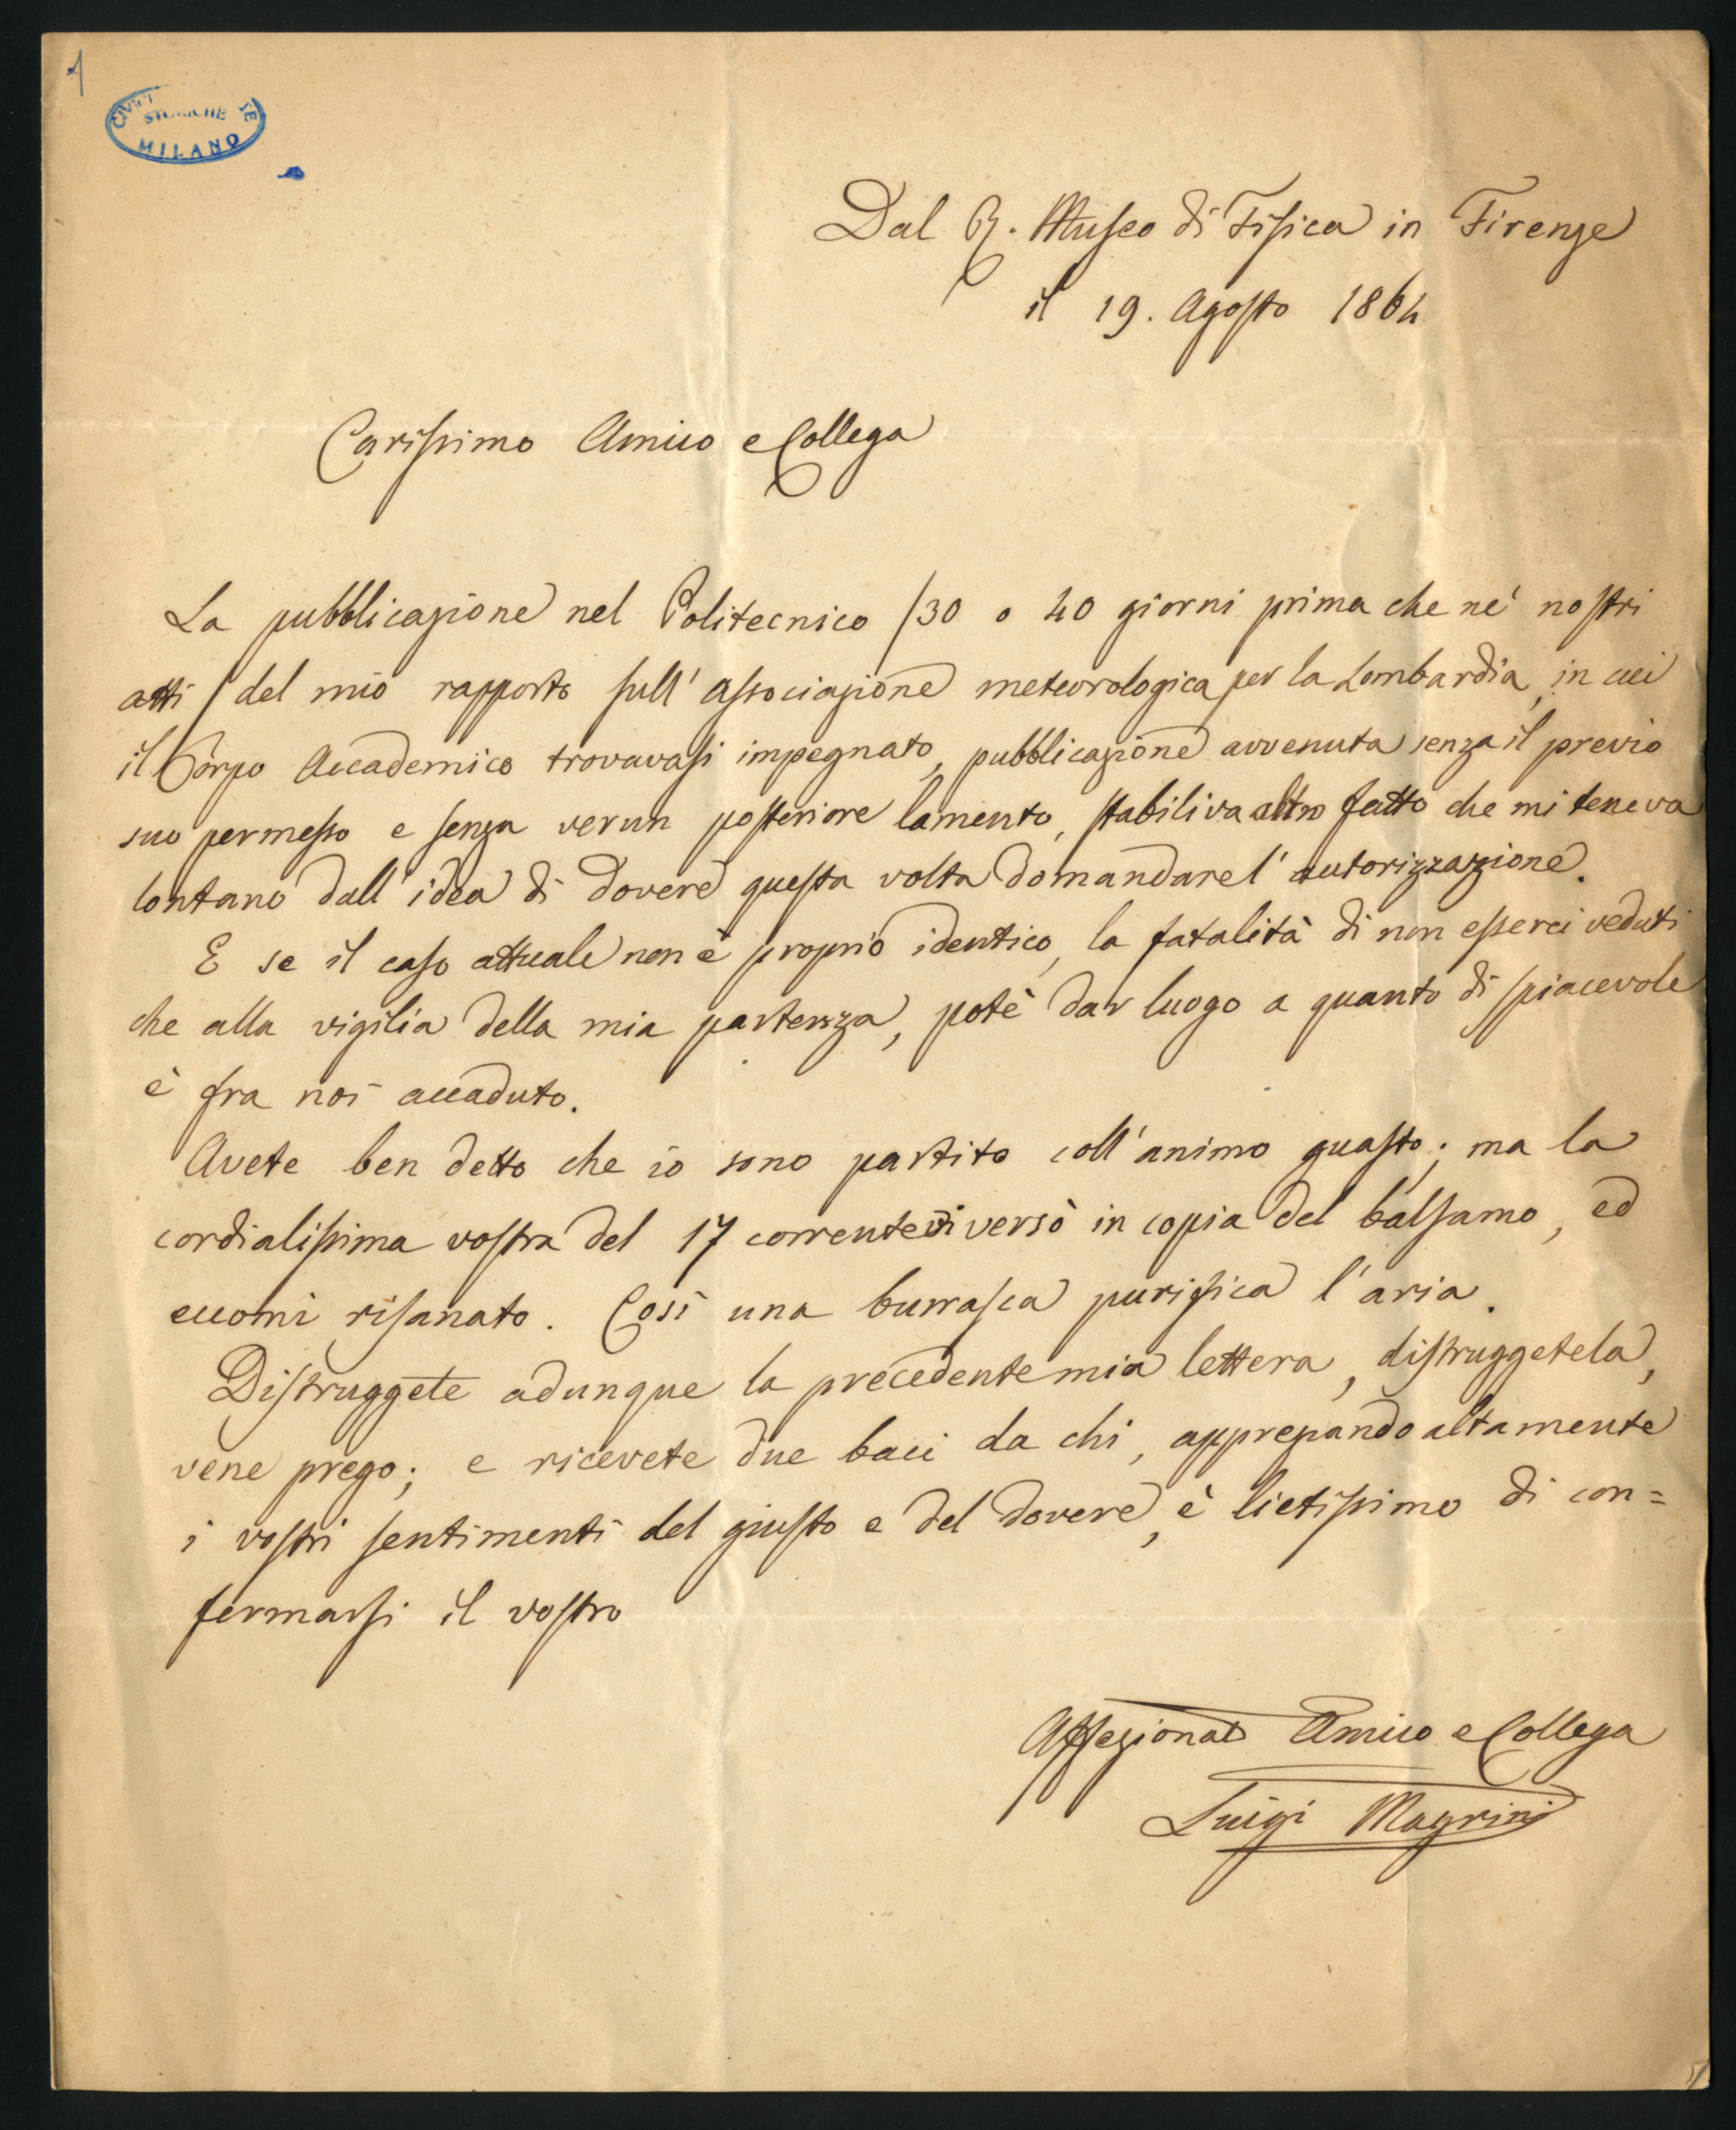 1
CIVICHE
STORICHE
MILANO
Dal R. Museo di Fisica in Firenze
il 19. Agosto 1864
Carissimo Amico e Collega
La pubblicazione nel Politecnico /30 o 40 giorni prima che ne' nostri
atti / del mio rapporto sull' associazione meteorologica per la Lombardia, in cui
il Corpo Accademico trovavasi impegnato, pubblicazione avvenuta senza il previo
suo permesso e senza verun posteriore lamento, stabiliva altro fatto che mi teneva
lontano dall' idea di dovere questa volta domandare l' autorizzazione.
E se il caso attuale non è proprio identico, la fatalità di non esserci veduti
che alla vigilia della mia partenza, potè dar luogo a quanto di spiacevole
è fra noi accaduto.
Avete ben detto che io sono partito coll' animo guasto; ma la
cordialissima vostra del 17 corrente vi versò in copia del balsamo, ed
eccomi risanato. Così una burrasca purifica l' aria.
Distruggete adunque la precedente mia lettera, distruggetela,
vene prego; e ricevete due baci da chi, apprezzando altamente
i vostri sentimenti del giusto e del dovere, è lietissimo di con=
fermarsi il vostro
Affezionat Amico e Collega
Luigi Magrini